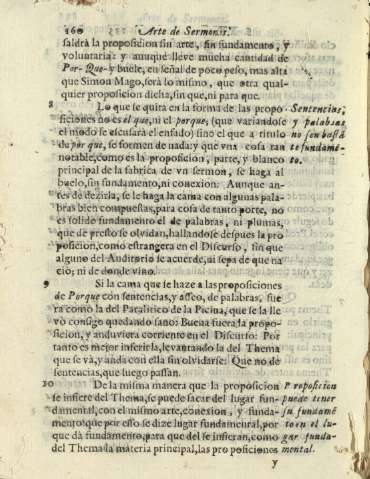 160 Arte de Sermones.
saldrà la proposicion sin arte, sin fundamento, y
voluntaria: y aunquè lleve mucha cantidad de
Por-Que-y buele, en señal de poco peso, mas alta
que Simon Mago, serà lo mismo, que otra qual-
quier proposicion dicha, sin que, ni para que.
8 Lo que se quita en la forma de las propo-
siciones no es el que, ni el porque, (que variandose
el modo se escusarà el enfado) sino el que a titulo
de por que, se formen de nada: y que vna cosa tan
notable, como es la proposicion, parte, y blanco
principal de la fabrica de vn sermon, se haga al
buelo, sin fundamento, ni conexion: Aunque an-
tes de dezirla, se le haga la cama con algunas pala-
bras bien compuestas, para cosa de tanto porte, no
es solido fundamento el de palabras, ni plumas,
que de presto se olvidan, hallandose despues la pro
posicion, como estrangera en el Discurso, sin que
alguno del Auditorio se acuerde, ni sepa de que na
ciò; ni de donde vino.
Sentencias,
y palabras
no son bastã
te fundamẽ-
to.
9 Si la cama que se haze a las proposiciones
de Porque con sentencias, y asseo, de palabras, fue
ra como la del Paralitico de la Picina, que se la lle
vò consigo quedando sano: Buena fuera la propo-
sicion, y anduviera corriente en el Discurso: Por
tanto es mejor inferirla, levantando la del Thema
que se và, y anda con ella sin olvidarse: Que no de
sentencias, que luego passan.
10 De la misma manera que la proposicion
se infiere del Thema, se puede sacar del lugar fun-
damental, con el mismo arte, conexion, y funda-
mento: que por esso se dize lugar fundamental, por
que dà fundamento, para que del se infieran, como
del Thema la materia principal, las proposiciones
Proposicion
puede tener
su fundamẽ
to en el lu-
gar funda-
mental.
Y